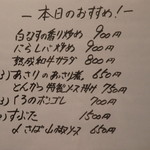 ー本日のおすすめ！ー
白なすの香り炒め 900円
にらレバ炒め 900円
熟成和牛カツ 800円
あさりの 650円
とんかつ 750円
くろのポンゴレ 700円
すぶた 1500円
〆さば山椒ソース 650円